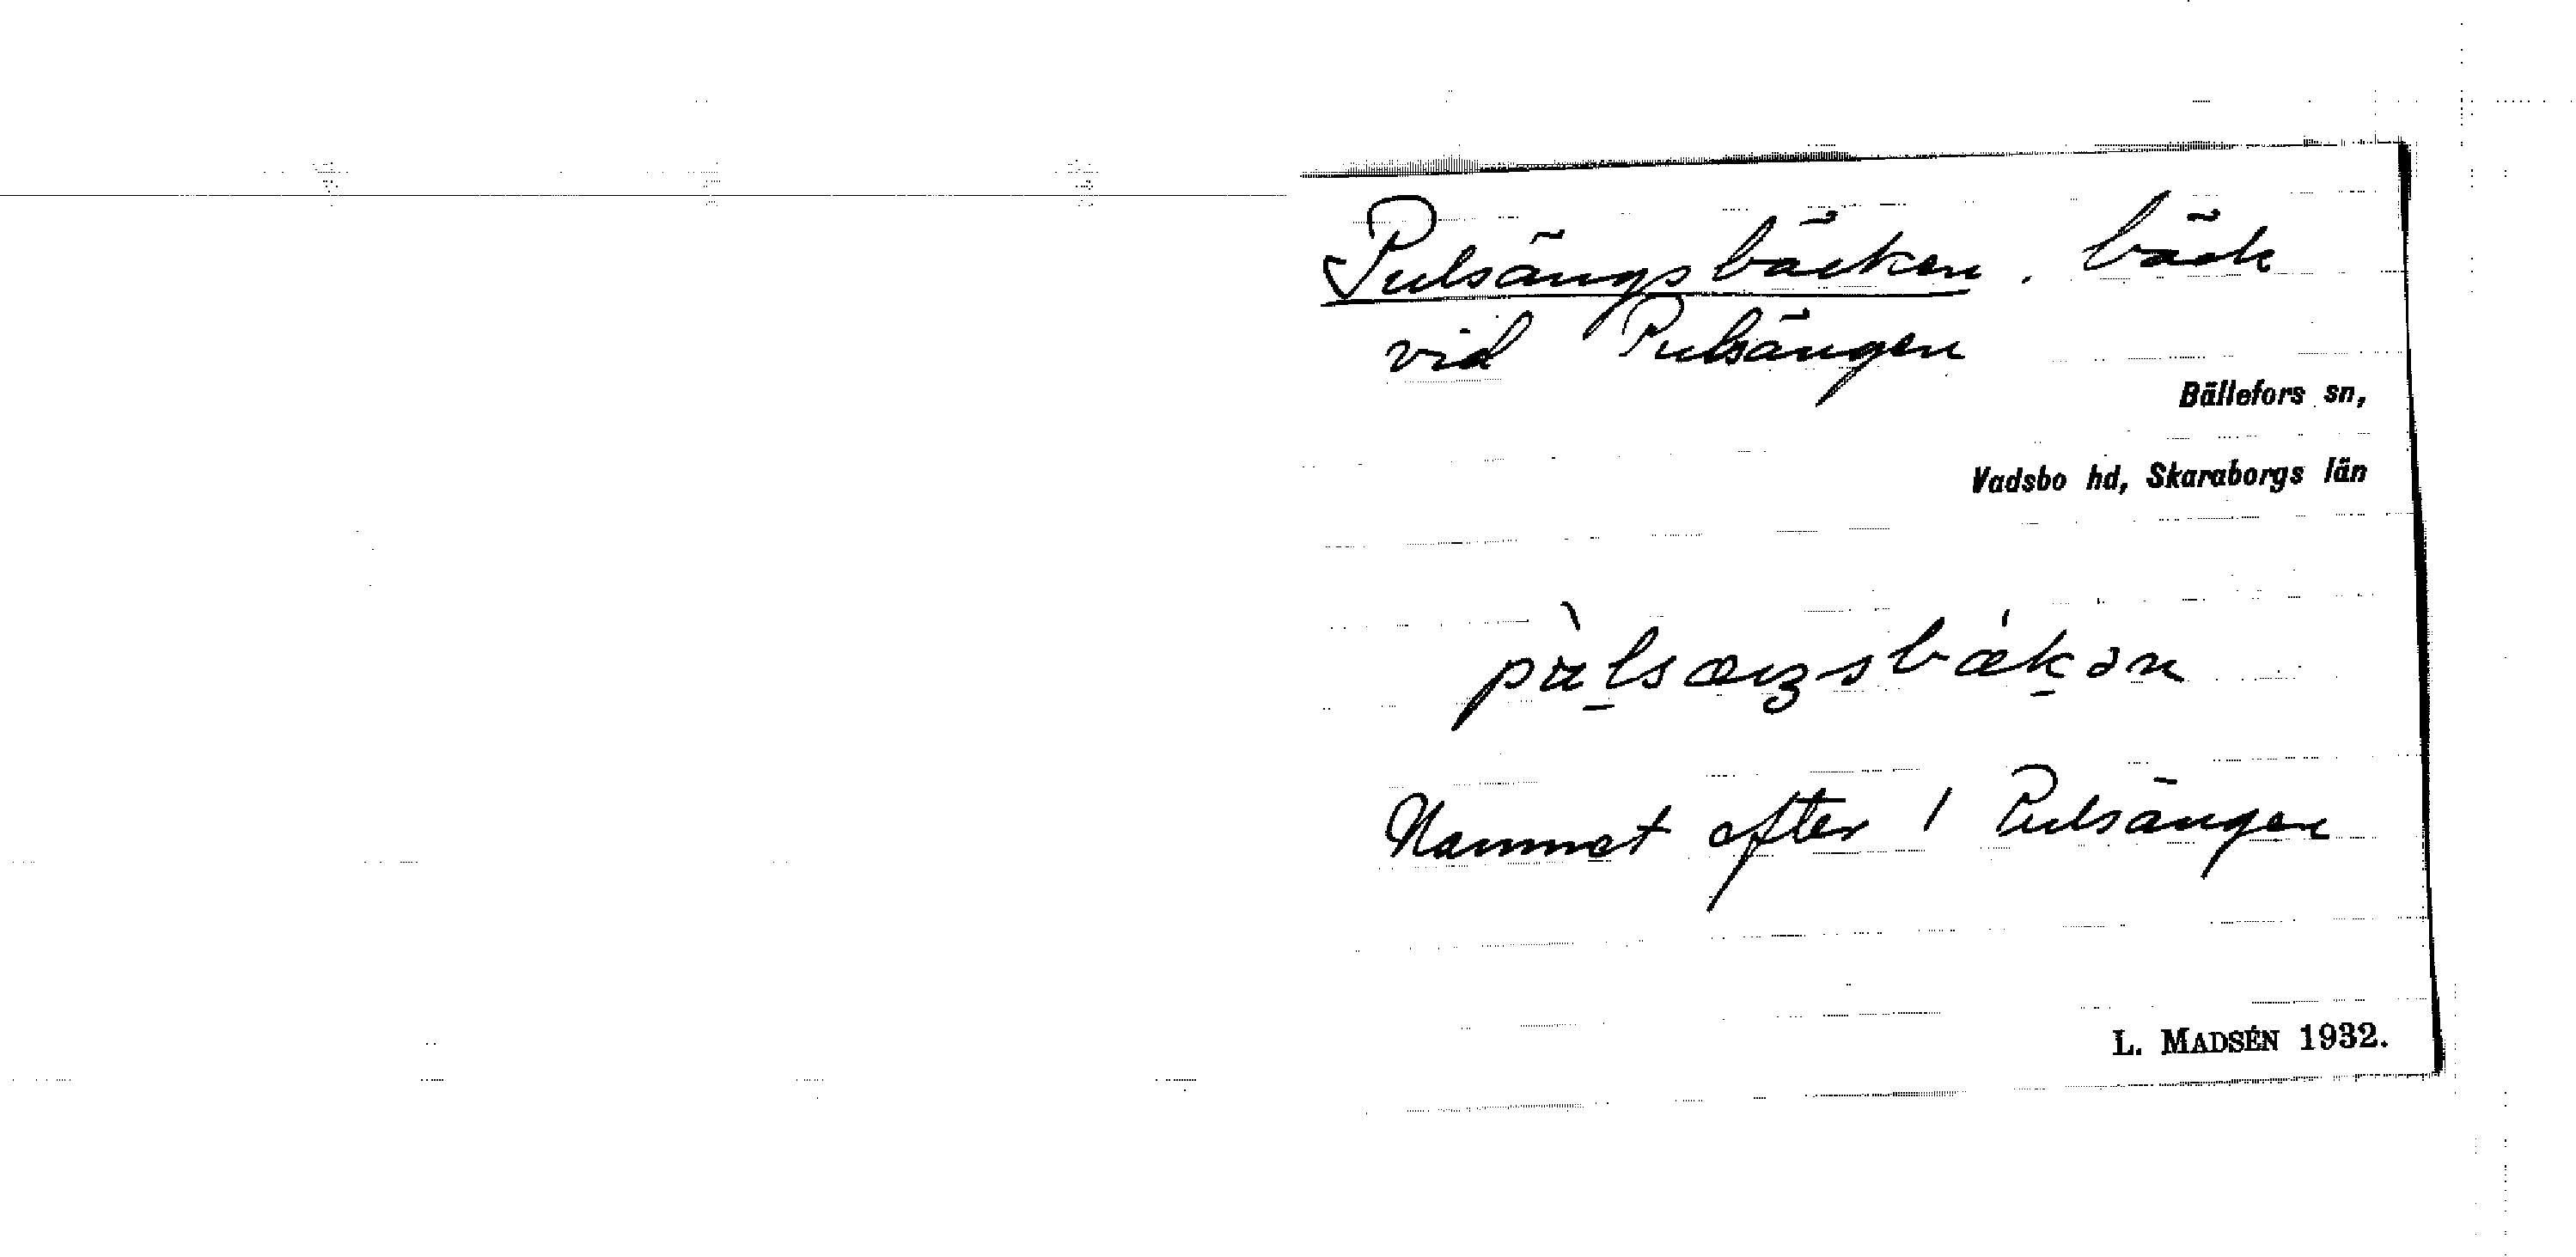 Pulsängsbäcken. bäck
vid Pulsängen
Bällefors sn,
Vadsbo hd, Skaraborgs län
Namnet efter / Pulsängen
L. MADSÉN 1932.